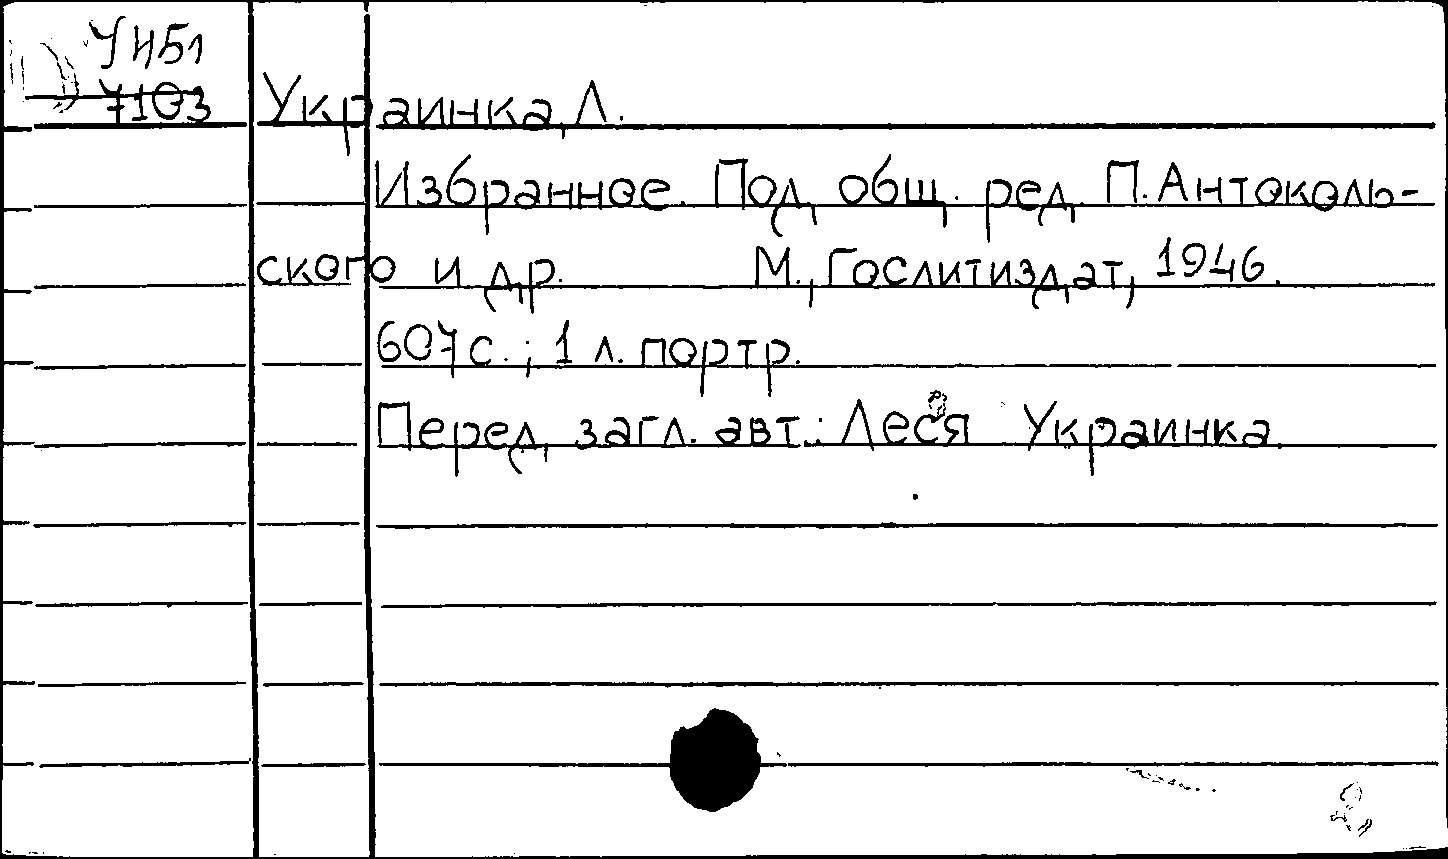 У451
7103
Украинка, Л.
Избранное. Под общ. ред. П. Антоколь-
ского и др. М., Гослитиздат, 1946.
607 с.; 1 л. портр.
Перед загл. авт.: Леся Украинка.